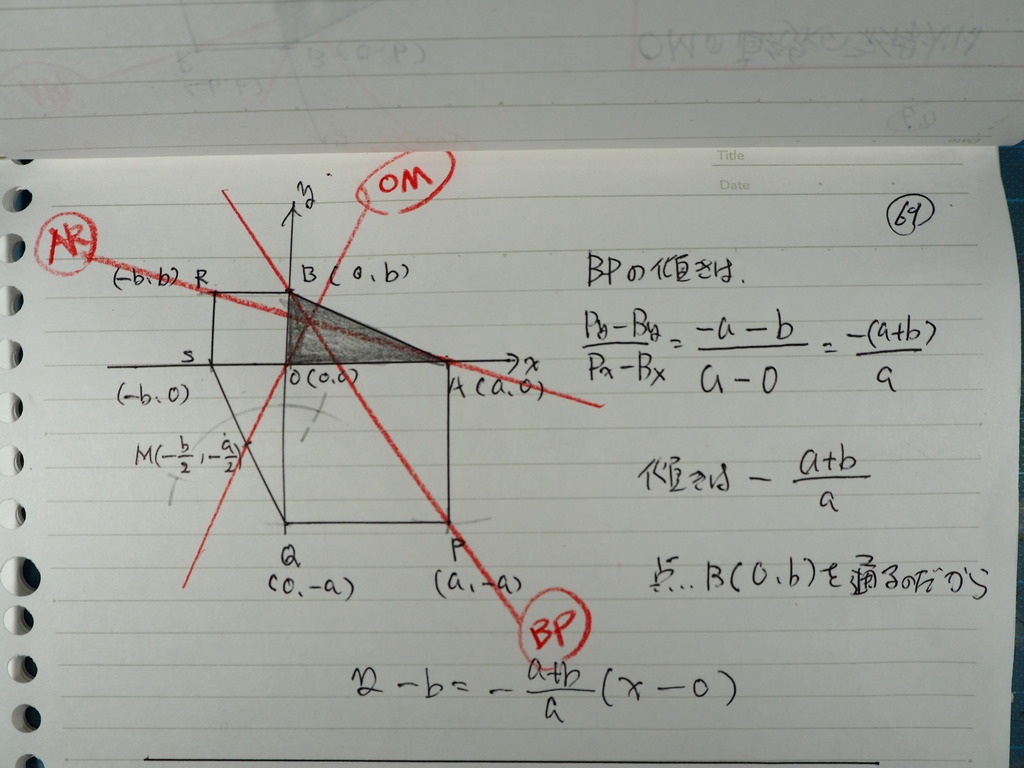 Title
Date
69
OM
AR
y
(-b, b) R
B (0, b)
S
O (0,0)
x
(-b, 0)
A (a, 0)
M(-b/2, -a/2)
Q
(0, -a)
P
(a, -a)
BP
BPの傾きは.
Py-By/Px-Bx = -a-b/a-0 = -(a+b)/a
傾きは - a+b/a
点.. B(0,b)を通るのだから
y-b = - a+b/a (x-0)